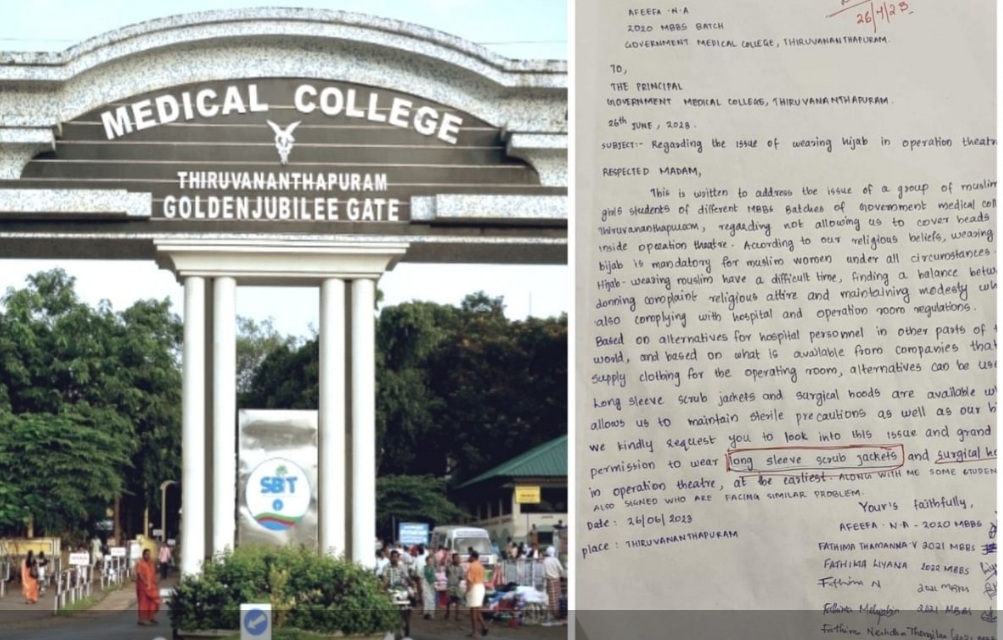 MEDICAL COLLEGE
THIRUVANANTHAPURAM
GOLDENJUBILEE GATE
SBT
AFEEFA N.A
2020 MBBS BATCH
GOVERNMENT MEDICAL COLLEGE, THIRUVANANTHAPURAM.
TO,
THE PRINCIPAL
GOVERNMENT MEDICAL COLLEGE, THIRUVANANTHAPURAM.
26th JUNE, 2023.
SUBJECT:- Regarding the issue of wearing hijab in operation theatr
RESPECTED MADAM,
This is written to address the issue of a group of muslim
girls students of different MBBS Batches of Government medical col
Thiruvananthapuram, regarding not allowing us to cover heads
inside operation theatre. According to our religious beliefs, wearing
hijab is mandatory for muslim women under all circumstances.
Hijab-wearing muslim have a difficult time, finding a balance betw
donning complaint religious attire and maintaining modesty wh
also complying with hospital and operation room regulations.
Based on alternatives for hospital personnel in other parts of
world, and based on what is available from companies that
supply clothing for the operating room, alternatives can be us
Long sleeve scrub jackets and surgical hoods are available w
allows us to maintain sterile precautions as well as our
we kindly request you to look into this issue and grand
permission to wear long sleeve scrub jackets and surgical ho
in operation theatre, at the earliest. ALONG WITH ME SOME STUDEN
ALSO SIGNED WHO ARE FACING SIMILAR PROBLEM.
Date: 26/06/2023
place: THIRUVANANTHAPURAM
Your's faithfully,
AFEEFA.N.A - 2020 MBBS
FATHIMA THAMANNA.V 2021 MBBS
FATHIMA LIYANA 2022 MBBS
Fathima N 2021 MBBS
Fathima 2021 MBBS
Fathima